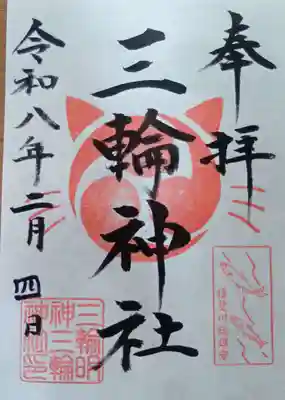 奉拝
三輪神社
令和八年二月四日
三輪明
神三輪